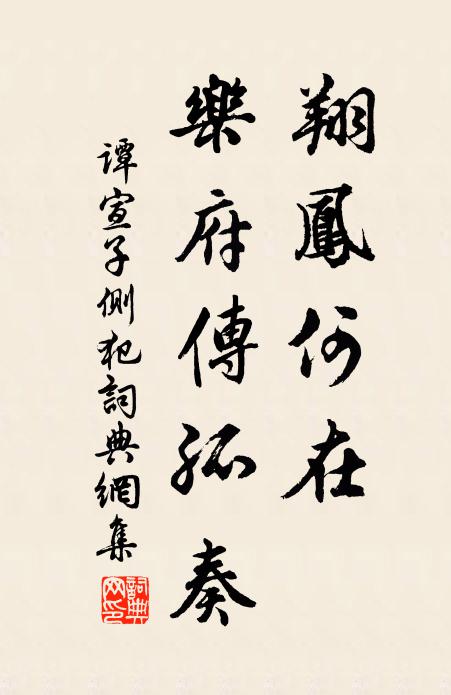 翔鳳何在
樂府傳孤奏
譚宣子側犯詞典網集
詞典網印